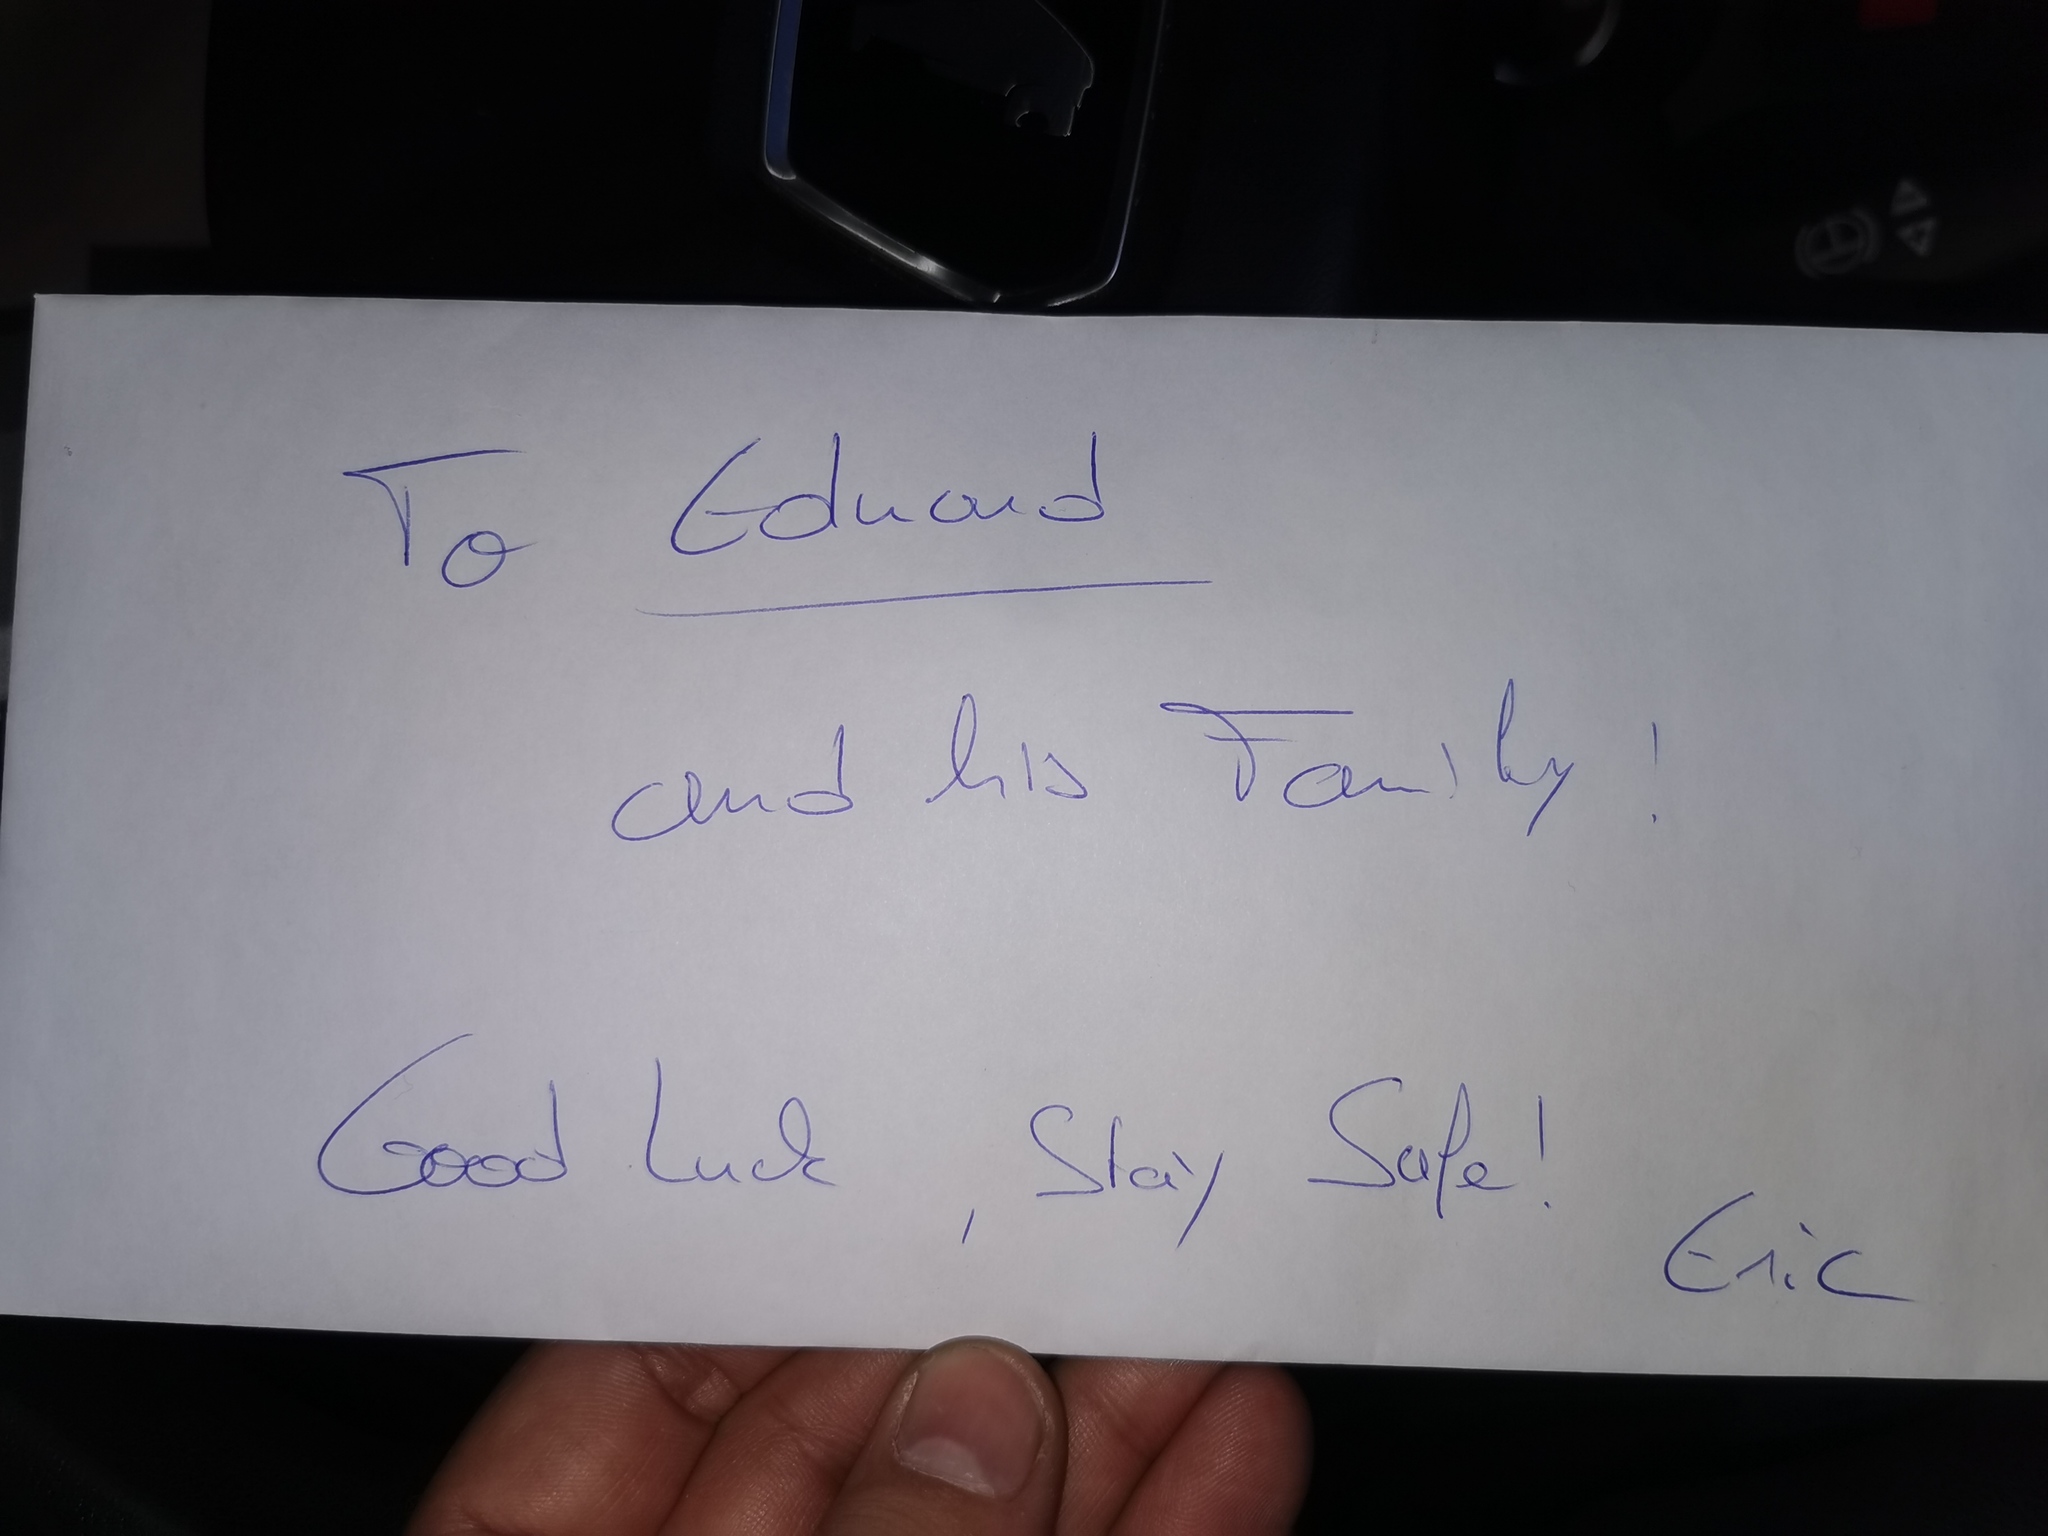 To Eduard
and his Family!
Good Luck, Stay Safe!
Eric